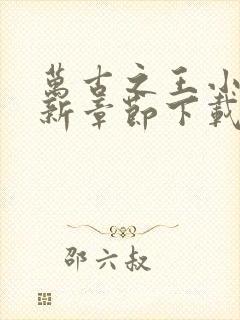 萬古之王小
新章節下載
邵六叔